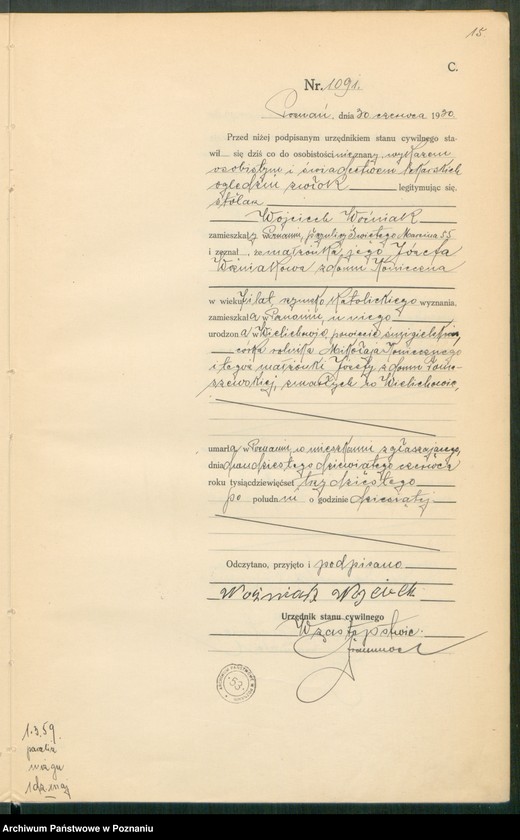 15
C.
Nr. 1091.
Poznań, dnia 30 czerwca 1930
Przed niżej podpisanym urzędnikiem stanu cywilnego sta-
wił się dziś co do osobistości nieznany, wykazem
osobistym i świadectwem lekarskich
oględzin zwłok legitymując się,
stolarz
Wojciech Woźniak
zamieszkały w Poznaniu, przy ulicy Świętego Marcina 55
i zeznał, że małżonka jego Józefa
Woźniakowa z domu Konieczna
w wieku lat, rzymsko katolickiego wyznania,
zamieszkała w Poznaniu, u niego
urodzona w Wielichowie, powiecie śmigielskim,
córka rolnika Mikołaja Koniecznego
i tegoż małżonki Józefy z domu
zmarłych w Wielichowie,
umarła w Poznaniu, w mieszkaniu zgłaszającego,
dnia dwudziestego dziewiątego czerwca
roku tysiącdziewięćset trzydziestego
po południu o godzinie dziesiątej
Odczytano, przyjęto i podpisano
Woźniak Wojciech
Urzędnik stanu cywilnego
W zastępstwie:
53
1.3.59.
Archiwum Państwowe w Poznaniu